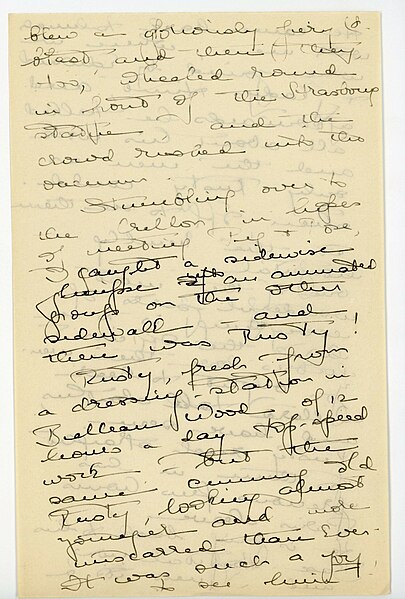 blew a gloriously fiery
blast and then they
too, wheeled round
in front of the Strasbourg
statue and the
crowd rushed into the
vacuum.
Stumbling over to
the Crillon in hopes
of meeting
I caught a sidewise
glimpse of an animated
group on the other
sidewalk and
there was Rusty!
Rusty, fresh from
a dressing-station in
Belleau Wood of 12
hours a day top-speed
work. but the
same cunning old
Rusty, looking almost
younger and more
unscarred than ever.
It was such a joy
to see him